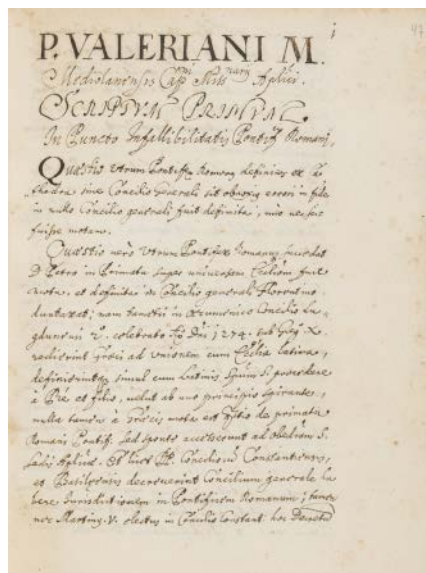 i
47
P. VALERIANI M.
Mediolanensis Capp.ni Miss.narij Aplici.
SCRIPTUM PRIMUM.
In Puncto Infallibilitatis Pontif. Romani,
Quæstio Utrum Pontifex Romanus definiens ex Ca
thedra sine Concilio generali sit obnoxius errori in fide
in nullo Concilio generali fuit definita, imo nec scio
fuisse motam.
Quæstio vero Utrum Pontifex Romanus succedat
D. Petro in Primatu super universam Ecclesiam fuit
mota, et definita in Concilio generali Florentino
duntaxat; nam tametsi in œcumenico Concilio Lu
gdunensi 2.º celebrato Dni 1274. sub Greg. X.
redierint Græci ad Unionem cum Ecclia latina,
definierintque simul cum Latinis Spum S. procedere
à Pre et filio, velut ab uno principio spirante,
nulla tamen à Græcis mota est qstio de primatu
Romani Pontif. sed sponte accesserunt ad obedientiam S.
Sedis Aplicæ. Et licet Concilium Constantiense,
et Basileense decreverint Concilium generale ha
bere Jurisdictionem in Pontificem Romanum; tamen
nec Martinus V. electus in Concilio Constant. hoc Decretum